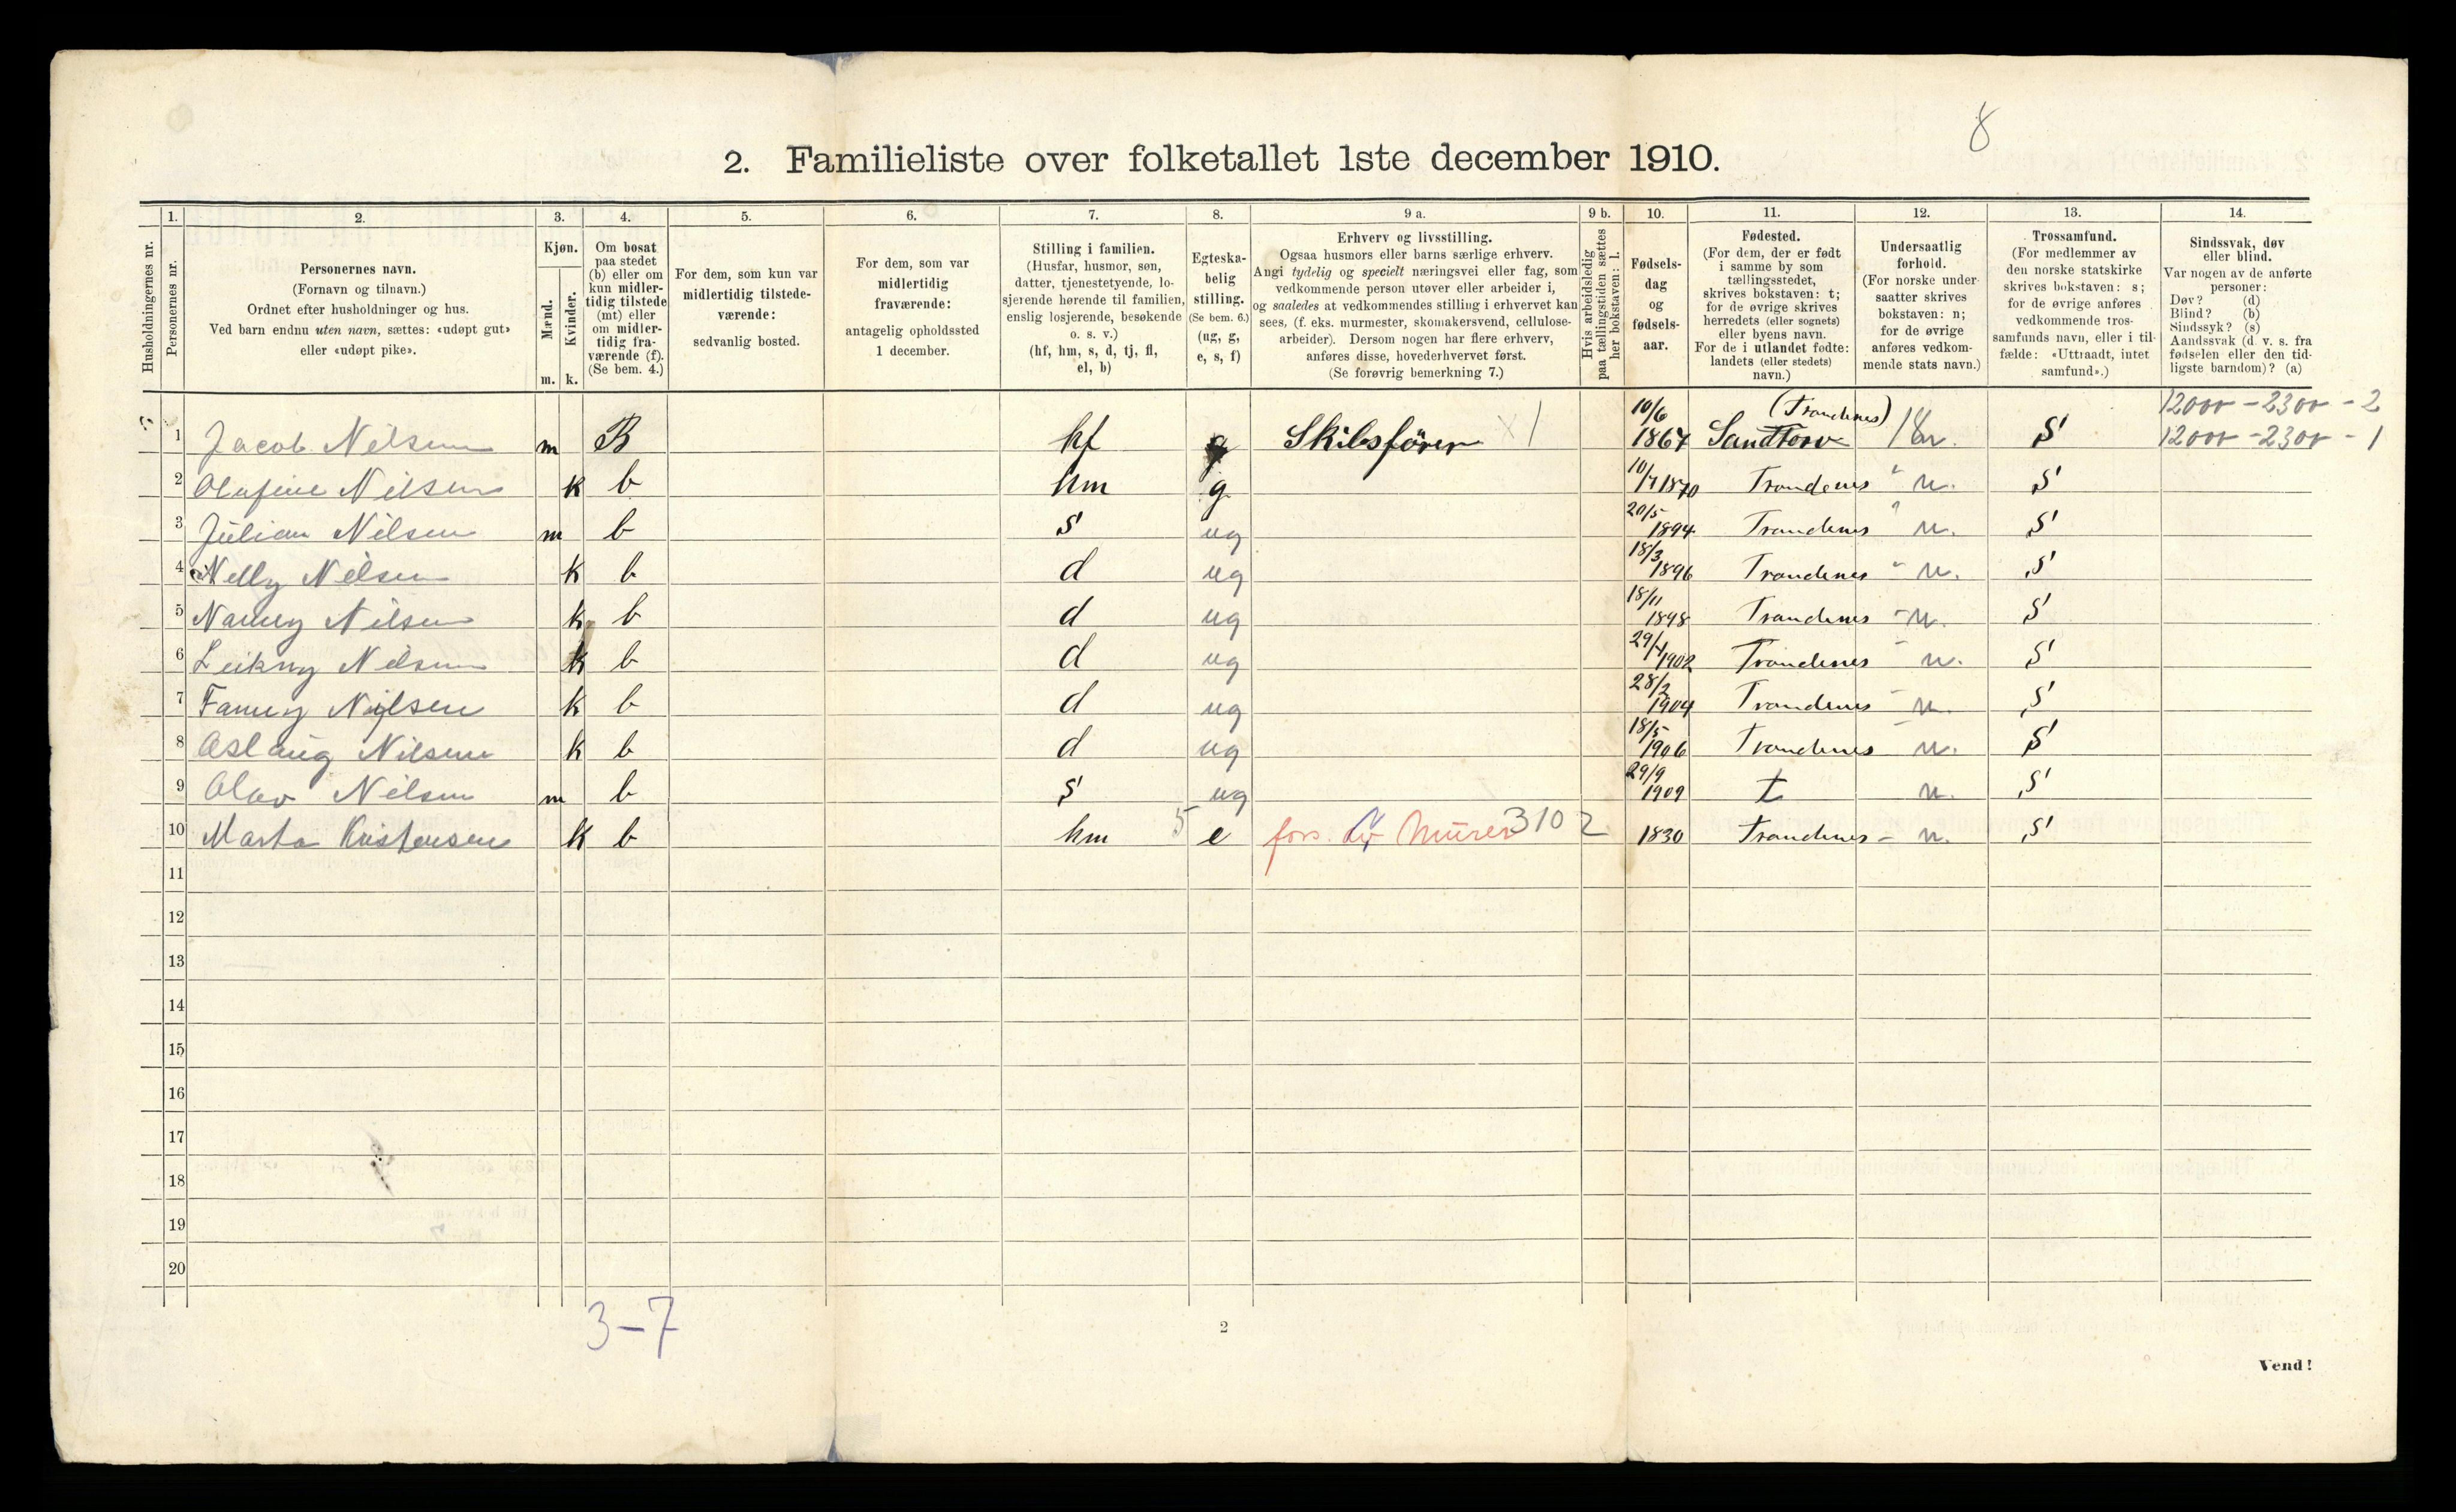 8
2. Familieliste over folketallet 1ste december 1910.
1. 2. 3. 4. 5. 6. 7. 8. 9 a. 9 b. 10. 11. 12. 13. 14.
Husholdningernes nr.
Personernes nr.
Personernes navn.
(Fornavn og tilnavn.)
Ordnet efter husholdninger og hus.
Ved barn endnu uten navn, sættes: «udøpt gut»
eller «udøpt pike».
Kjøn.
Mænd.
Kvinder.
m. k.
Om bosat
paa stedet
(b) eller om
kun midler-
tidig tilstede
(mt) eller
om midler-
tidig fra-
værende (f).
(Se bem. 4.)
For dem, som kun var
midlertidig tilstede-
værende:
sedvanlig bosted.
For dem, som var
midlertidig
fraværende:
antagelig opholdssted
1 december.
Stilling i familien.
(Husfar, husmor, søn,
datter, tjenestetyende, lo-
sjerende hørende til familien,
enslig losjerende, besøkende
o. s. v.)
(hf, hm, s, d, tj, fl,
el, b)
Egteska-
belig
stilling.
(Se bem. 6.)
(ug, g,
e, s, f)
Erhverv og livsstilling.
Ogsaa husmors eller barns særlige erhverv.
Angi tydelig og specielt næringsvei eller fag, som
vedkommende person utøver eller arbeider i,
og saaledes at vedkommendes stilling i erhvervet kan
sees, (f. eks. murmester, skomakersvend, cellulose-
arbeider). Dersom nogen har flere erhverv,
anføres disse, hovederhvervet først.
(Se forøvrig bemerkning 7.)
Hvis arbeidsledig
paa tællingstiden sættes
her bokstaven: l.
Fødsels-
dag
og
fødsels-
aar.
Fødested.
(For dem, der er født
i samme by som
tællingsstedet,
skrives bokstaven: t;
for de øvrige skrives
herredets (eller sognets)
eller byens navn.
For de i utlandet fødte:
landets (eller stedets)
navn.)
Undersaatlig
forhold.
(For norske under-
saatter skrives
bokstaven: n;
for de øvrige
anføres vedkom-
mende stats navn.)
Trossamfund.
(For medlemmer av
den norske statskirke
skrives bokstaven: s;
for de øvrige anføres
vedkommende tros-
samfunds navn, eller i til-
fælde: «Uttraadt, intet
samfund».)
Sindssvak, døv
eller blind.
Var nogen av de anførte
personer:
Døv? (d)
Blind? (b)
Sindssyk? (s)
Aandssvak (d. v. s. fra
fødselen eller den tid-
ligste barndom)? (a)
1 Jacob Nilsen m B hf g Skibsfører x1 10/6 1867 Sandtorv (Trondenes) 18 n. S 12000-2300-2
12000-2300-1
2 Olufine Nilsen k b hm g 10/7 1870 Trondenes " n. S
3 Julian Nilsen m b s ug 20/5 1894 Trondenes " n. S
4 Nelly Nilsen k b d ug 18/3 1896 Trondenes " n. S
5 Nanny Nilsen k b d ug 18/11 1898 Trondenes - n. S
6 Leikny Nilsen k b d ug 29/4 1902 Trondenes - n. S
7 Fanny Nilsen k b d ug 28/2 1904 Trondenes - n. S
8 Aslaug Nilsen k b d ug 18/5 1906 Trondenes - n. S
9 Olav Nilsen m b s ug 29/9 1909 t n. S
10 Marta Kristensen k b hm 5 e fors. murer 310 2 1830 Trondenes - n. S
11
12
13
14
15
16
17
18
19
20
3-7
2
Vend!